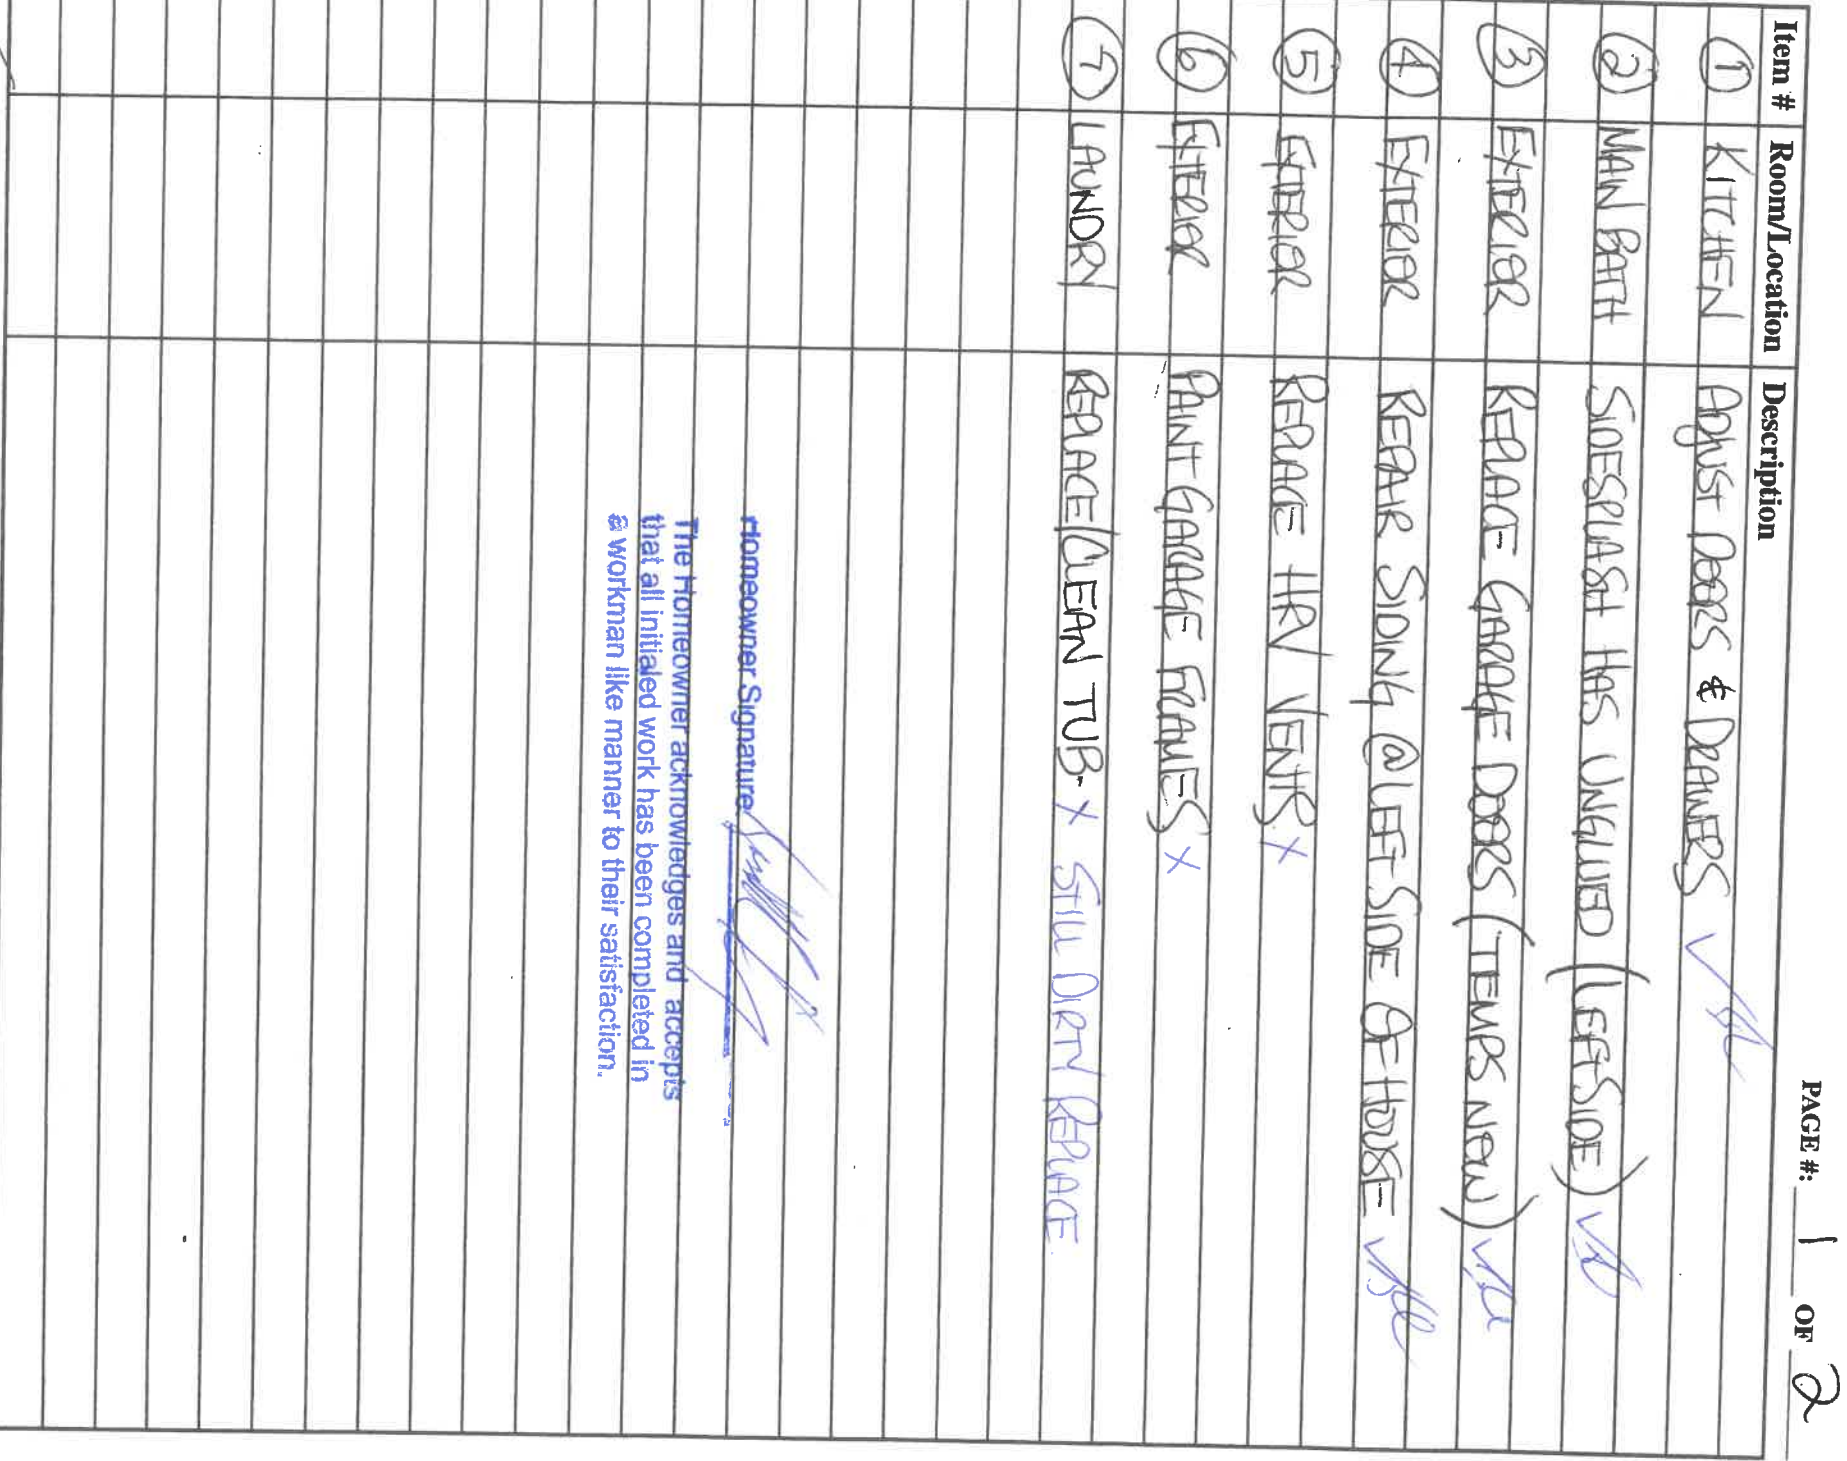 PAGE #: 1 OF 2
Item # Room/Location Description
1 KITCHEN ADJUST DOORS & DRAWERS ✓
2 MAIN BATH SIDESPLASH HAS UNGLUED (LEFT SIDE) ✓
3 EXTERIOR REPLACE GARAGE DOORS (TEMPS NOW) ✓
4 EXTERIOR REPAIR SIDING @ LEFT SIDE OF HOUSE ✓
5 EXTERIOR REPLACE HRV VENTS. X
6 EXTERIOR PAINT GARAGE FRAMES X
7 LAUNDRY REPLACE/CLEAN TUB- X STILL DIRTY REPLACE.
Homeowner Signature
The Homeowner acknowledges and accepts
that all initialed work has been completed in
a workman like manner to their satisfaction.